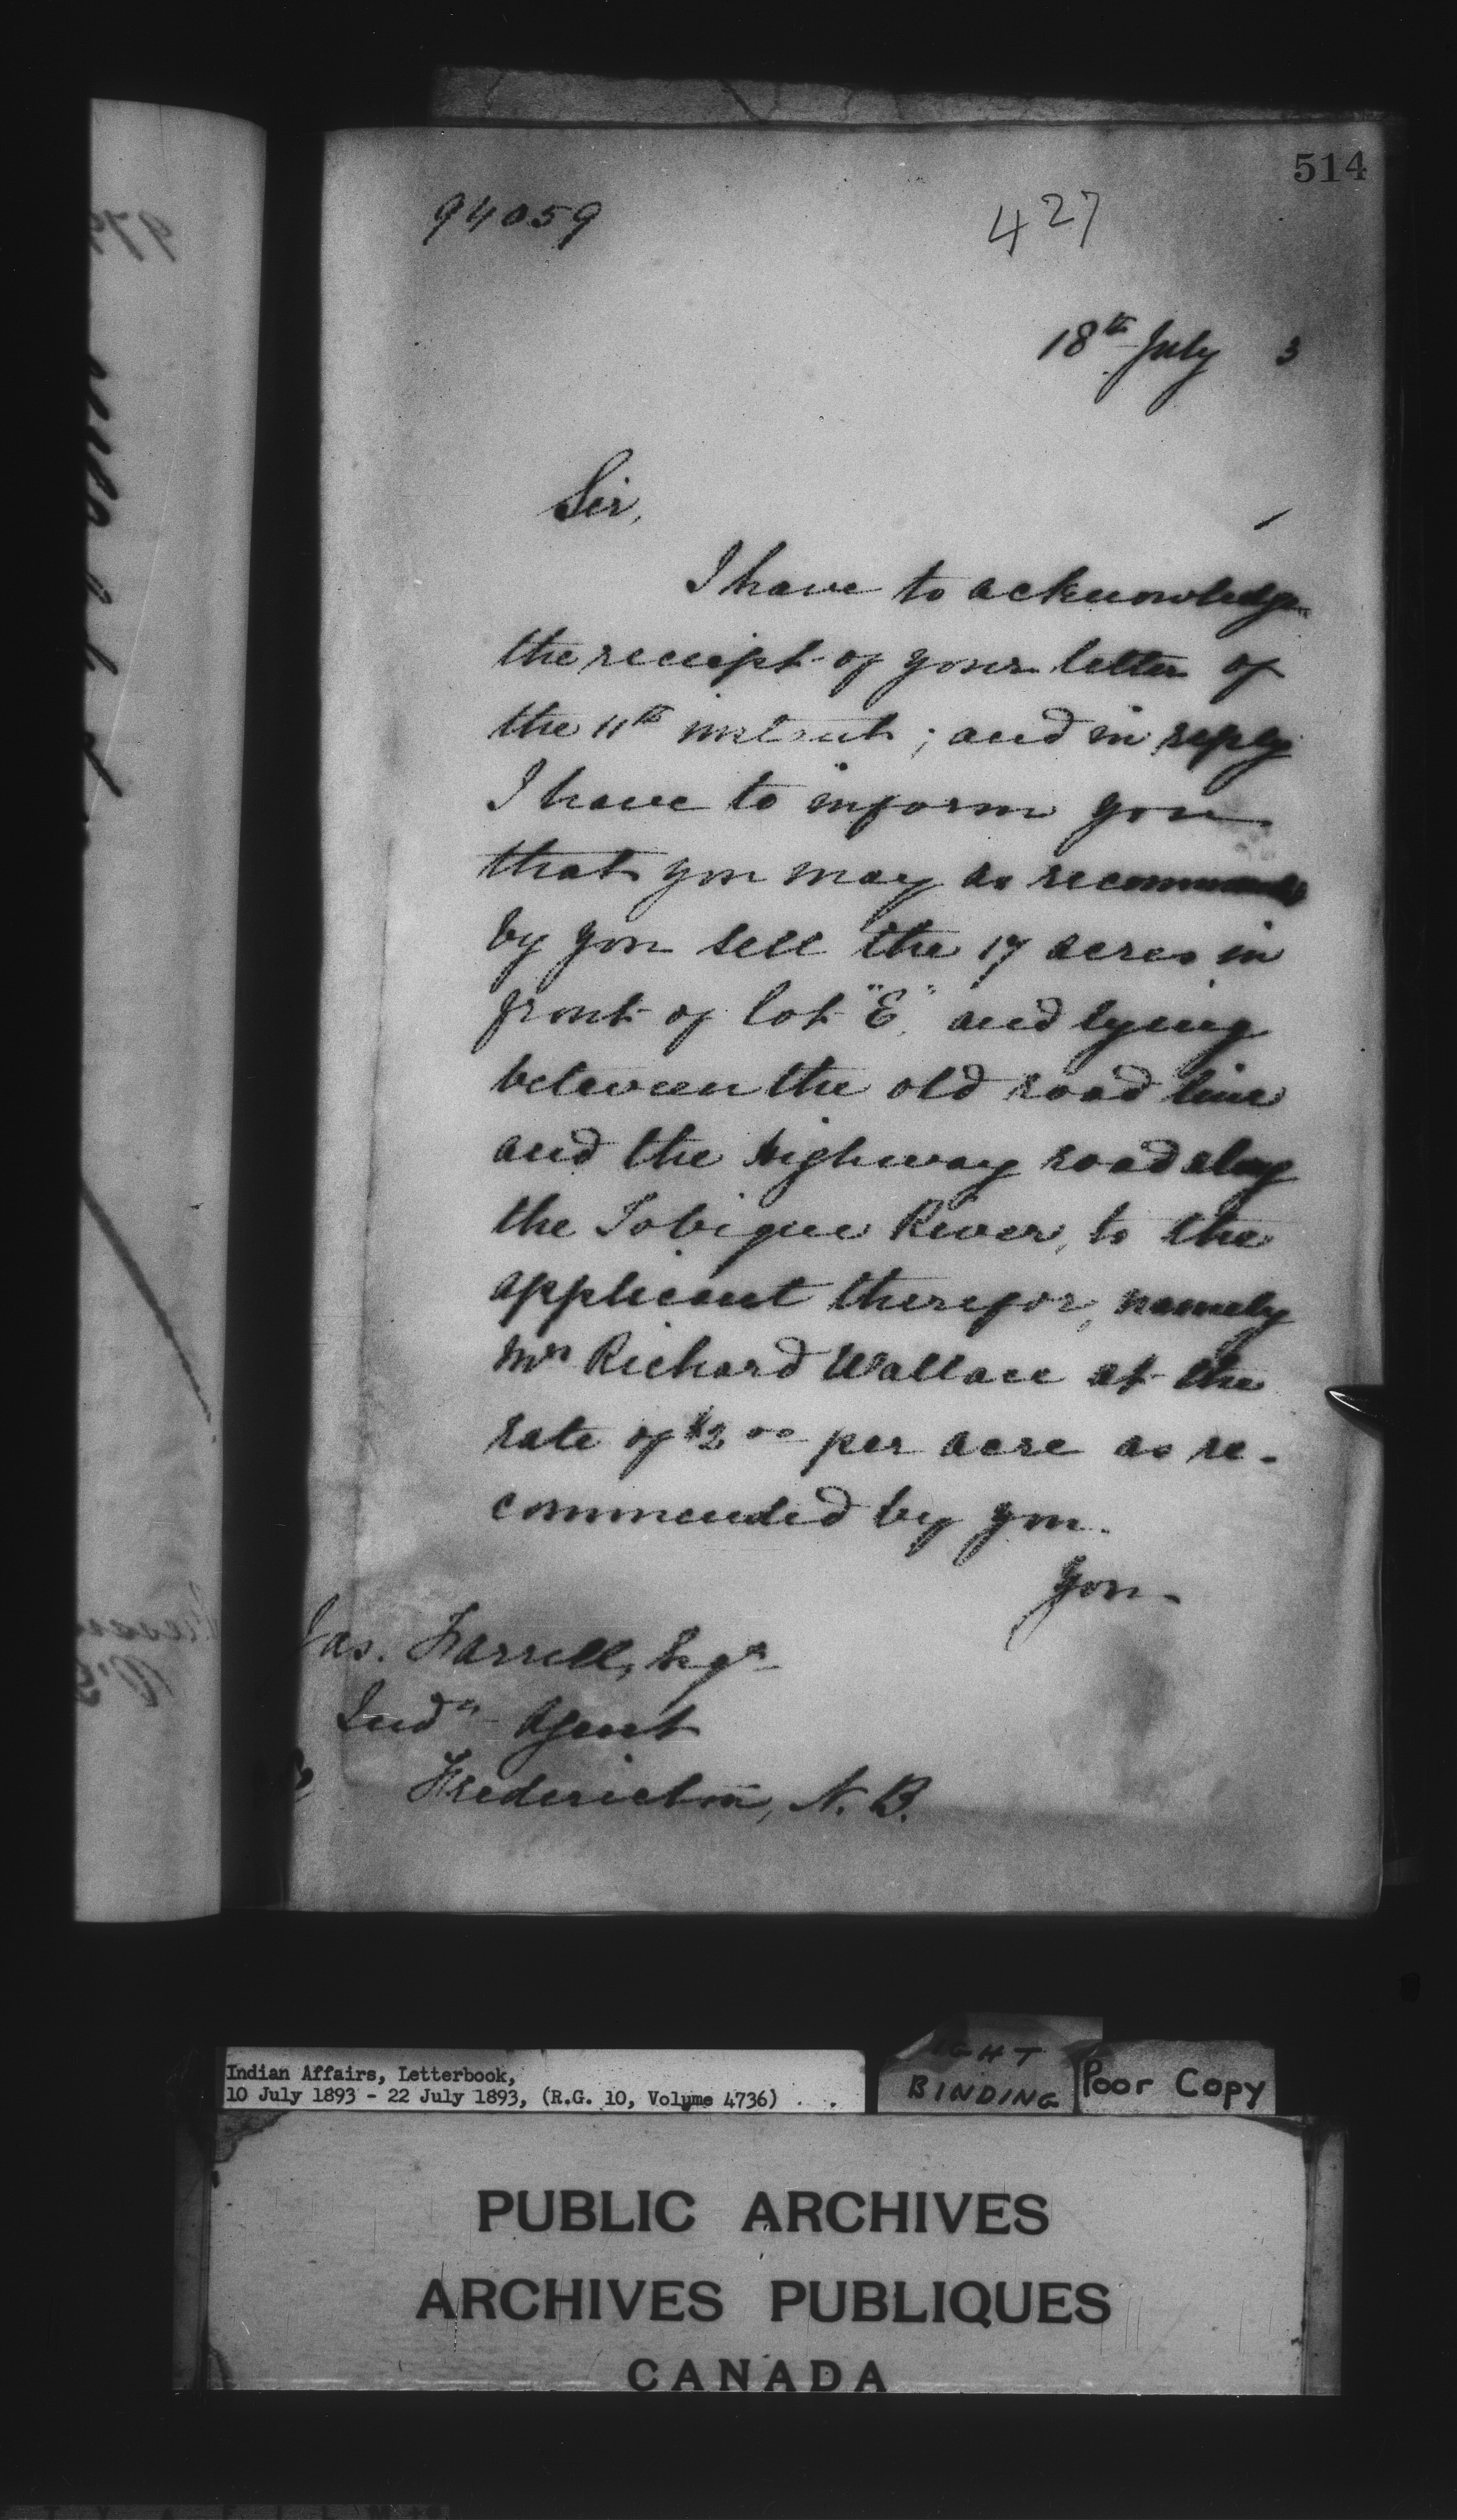 514
94059
427
18th July 3
Sir,
I have to acknowledge
the receipt of your letter of
the 11th instant; and in reply
I have to inform you
that you may as recommended
by you sell the 17 acres in
front of lot "E" and lying
between the old road line
and the highway road along
the Tobique River, to the
applicant therefor, namely
Mr Richard Wallace at the
rate of $2.00 per acre as re-
commended by you.
You
Jas. Farrell, Esqr
Indn Agent
Fredericton, N.B.
Indian Affairs, Letterbook,
10 July 1893 - 22 July 1893, (R.G. 10, Volume 4736)
BINDING
Poor Copy
PUBLIC ARCHIVES
ARCHIVES PUBLIQUES
CANADA